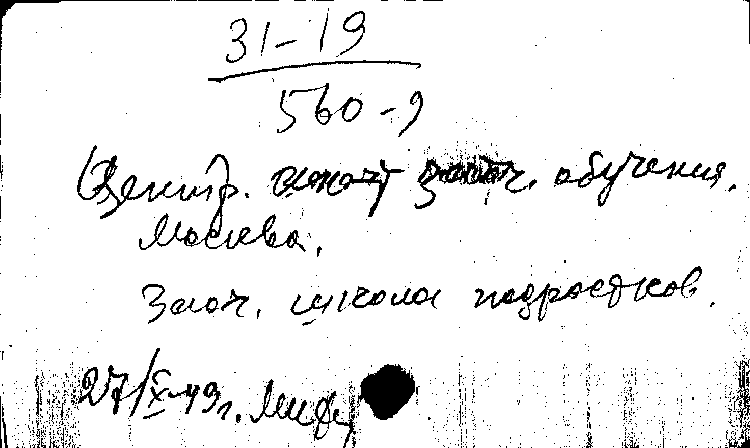 31-19
560-9
Центр. заоч. обучения.
Москва.
Заоч. школа подростков.
27/IX-49г.